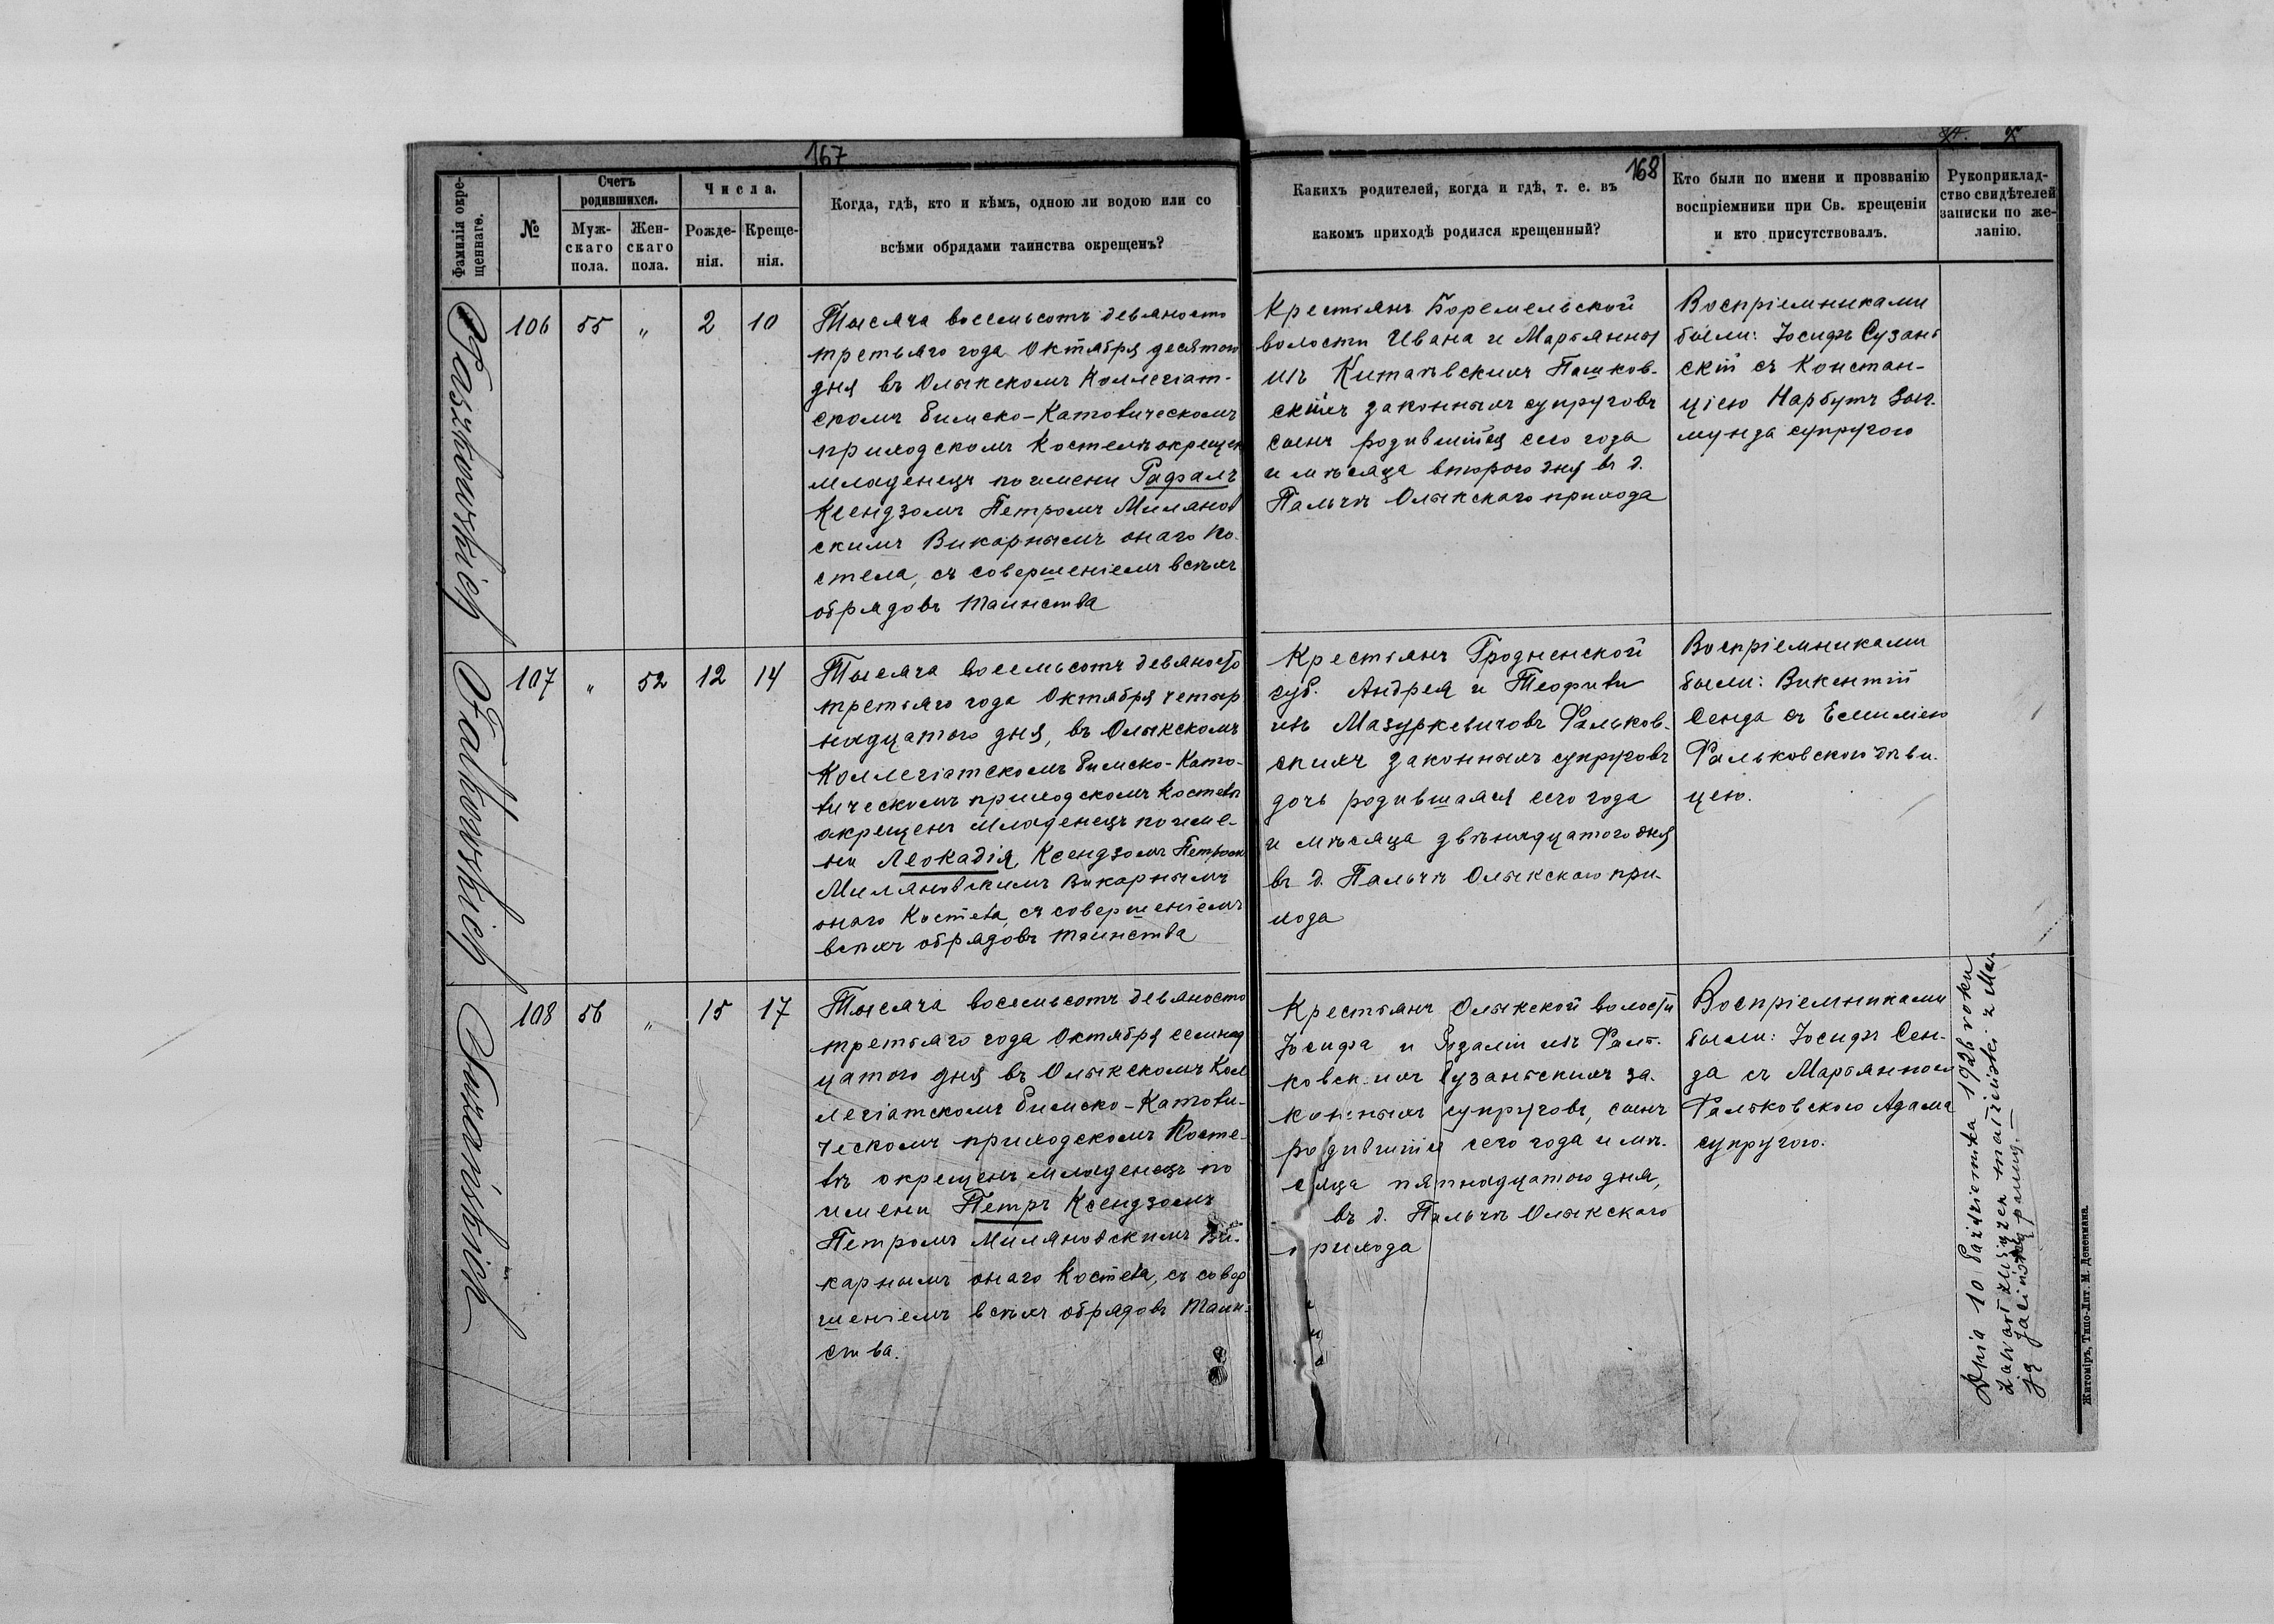 167
168
Фамилія окре-
щеннаго.
№
Счетъ
родившихся.
Муж-
скаго
пола.
Жен-
скаго
пола.
Числа.
Рожде-
нія.
Креще-
нія.
Когда, гдѣ, кто и кѣмъ, одною ли водою или со
всѣми обрядами таинства окрещенъ?
Какихъ родителей, когда и гдѣ, т. е. въ
какомъ приходѣ родился крещенный?
Кто были по имени и прозванію
воспріемники при Св. крещеніи
и кто присутствовалъ.
Рукоприклад-
ство свидѣтелей
записки по же-
ланію.
Paszkowskich
106 55 " 2 10
Тысяча восемьсотъ девяносто
третьяго года Октября десятого
дня въ Олыкскомъ Коллегіат-
скомъ Римско-Католическомъ
приходскомъ Костелѣ окрещен
младенецъ по имени Рафалъ
Ксендзомъ Петромъ Милянов
скимъ Викарнымъ онаго Ко-
стела, съ совершеніемъ всѣхъ
обрядовъ таинства
Крестьянъ Боремельской
волости Ивана и Марьянны
изъ Китаевскихъ Пашков-
скихъ законныхъ супруговъ
сынъ родившійся сего года
и мѣсяца второго дня въ д.
Пальчѣ Олыкскаго прихода
Воспріемниками
были: Іосифъ Сузань
скій съ Констан-
ціею Нарбутъ Зыг-
мунда супругою
Falkowskich
107 " 52 12 14
Тысяча восемьсотъ девяносто
третьяго года Октября четыр
надцатого дня, въ Олыкскомъ
Коллегіатскомъ Римско-Като-
лическомъ приходскомъ Костелѣ
окрещенъ младенецъ по име-
ни Леокадія Ксендзомъ Петромъ
Миляновскимъ Викарнымъ
онаго Костела, съ совершеніемъ
всѣхъ обрядовъ таинства
Крестьянъ Гродненской
губ. Андрея и Теофили
изъ Мазуркевичовъ Фальков-
скихъ законныхъ супруговъ
дочь родившаяся сего года
и мѣсяца двѣнадцатого дня
въ д. Пальчѣ Олыкского при-
хода
Воспріемниками
были: Викентій
Сенда съ Емиліею
Фальковского дѣви-
цею.
108 56 " 15 17
Тысяча восемьсотъ девяносто
третьяго года Октября семнад
цатого дня въ Олыкскомъ Кол
легіатскомъ Римско-Католи-
ческомъ приходскомъ Косте-
лѣ окрещенъ младенецъ по
имени Петръ Ксендзомъ
Петромъ Миляновскимъ Ви-
карнымъ онаго Костела, съ совер
шеніемъ всѣхъ обрядовъ таин-
ства.
Крестьянъ Олыкской волости
Іосифа и Розаліи изъ Фаль-
ковскихъ Сузанскихъ за-
конныхъ супруговъ, сынъ
родившійся сего года и мѣ-
сяца пятнадцатого дня,
въ д. Пальчѣ Олыкского
прихода
Воспріемниками
были: Іосифъ Сен-
да съ Марьянною
Фальковского Адама
супругою.
Dnia 10 Października 1926 roku
zawarł związek małżeński z Mar
ją panną.—
Житоміръ, Типо-Лит. М. Дененмана.